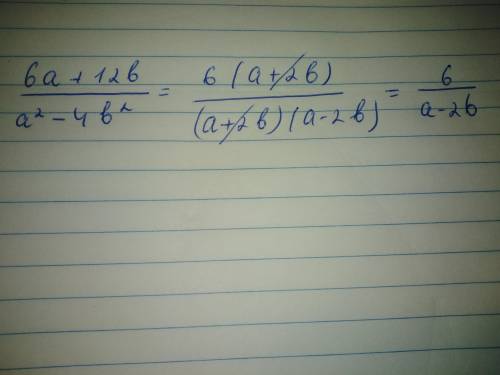 6a + 12b / a² - 4b² = 6 (a+2b) / (a+2b) (a-2b) = 6 / a-2b